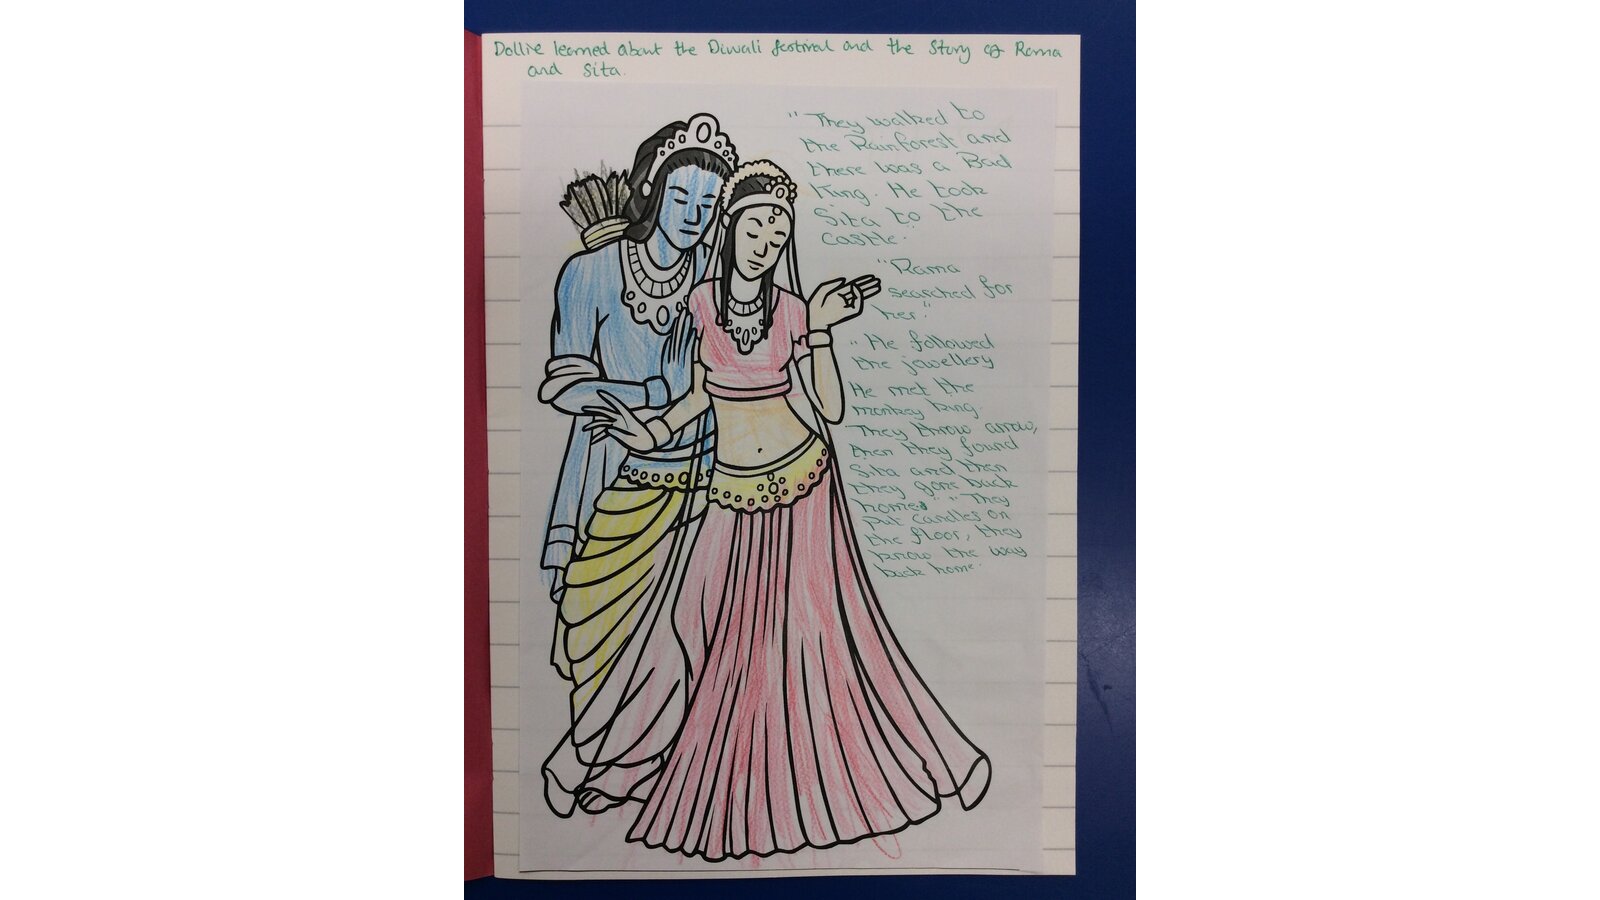 Dollie learned about the Diwali festival and the Story of Rama
and Sita.
"They walked to
the Rainforest and
there was a Bad
King. He took
Sita to the
castle."
"Rama
searched for
her."
"He followed
the jewellery
He met the
monkey king.
They throw arrow,
then they found
Sita and then
they gone back
home." "They
put candles on
the floor, they
know the way
back home."